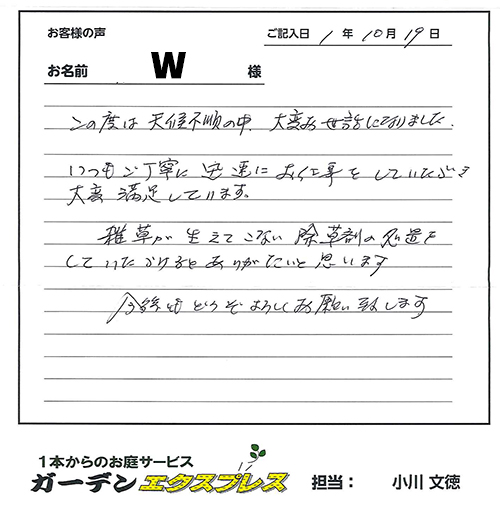 お客様の声
ご記入日 1 年 10 月 19 日
お名前 W 様
この度は 天候不順の中、大変お世話になりました。
いつもご丁寧に 迅速に お仕事をしていただき
大変 満足しています。
雑草が 生えてこない 除草剤の処置を
していただけるとありがたいと思います
今後も どうぞよろしくお願い致します
1本からのお庭サービス
ガーデンエクスプレス
担当： 小川 文徳